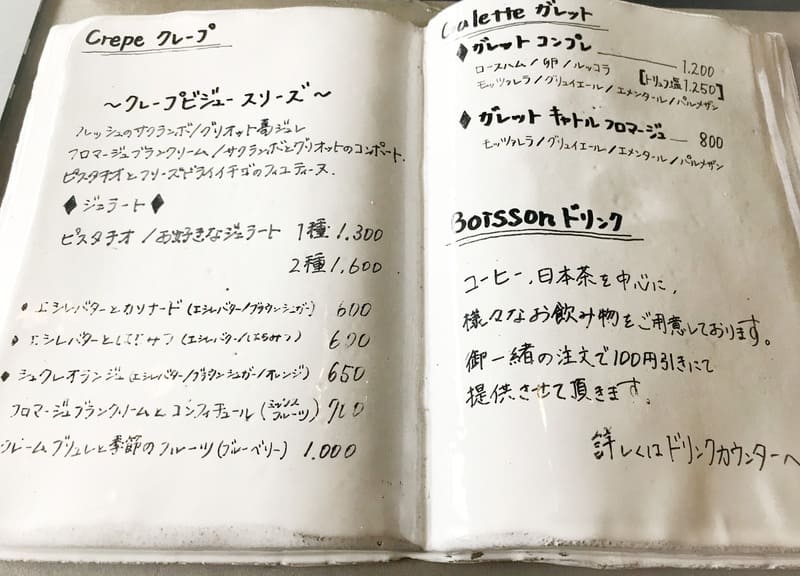 Crepe クレープ
～クレープビジュースリーズ～
ルッシュのサクランボ/グリオット葛ジュレ
フロマージュブランクリーム/サクランボとグリオットのコンポート.
ピスタチオとフリーズドライイチゴのフィユティーヌ.
◆ジェラート◆
ピスタチオ/お好きなジェラート 1種 1.300
2種 1,600
エシレバターとカソナード(エシレバター/ブラウンシュガー) 600
エシレバターとはちみつ(エシレバター/はちみつ) 600
◆シュクレオランジュ(エシレバター/ブラウンシュガー/オレンジ) 650
フロマージュブランクリームとコンフィチュール(ミックスフルーツ) 700
クレームブリュレと季節のフルーツ(ブルーベリー) 1.000
Galette ガレット
◆ガレット コンプレ 1.200
ロースハム/卵/ルッコラ [トリュフ塩 1.250]
モッツァレラ/グリュイエール/エメンタール/パルメザン
◆ガレット キャトルフロマージュ 800
モッツァレラ/グリュイエール/エメンタール/パルメザン
Boisson ドリンク
コーヒー,日本茶を中心に,
様々なお飲み物をご用意しております。
御一緒の注文で100円引きにて
提供させて頂きます。
詳しくはドリンクカウンターへ